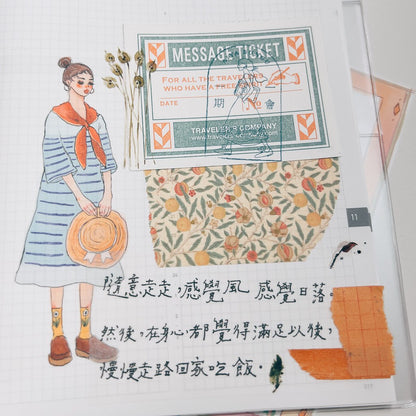 MESSAGE TICKET
FOR ALL THE TRAVELERS
WHO HAVE A FREE
DATE
期
會
TRAVELER'S COMPANY
www.travelers-company.com
11
隨意走走，感覺風 感覺日落。
然後，在身心都覺得滿足以後，
慢慢走路回家吃飯．